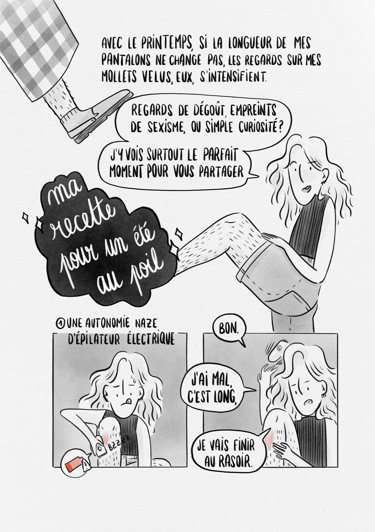 AVEC LE PRINTEMPS, SI LA LONGUEUR DE MES
PANTALONS NE CHANGE PAS, LES REGARDS SUR MES
MOLLETS VELUS, EUX, S'INTENSIFIENT.
REGARDS DE DÉGOÛT, EMPREINTS
DE SEXISME, OU SIMPLE CURIOSITÉ?
J'Y VOIS SURTOUT LE PARFAIT
MOMENT POUR VOUS PARTAGER
ma
recette
pour un été
au poil
① UNE AUTONOMIE NAZE
D'ÉPILATEUR ÉLECTRIQUE
BZZZ
BON.
J'AI MAL,
C'EST LONG,
JE VAIS FINIR
AU RASOIR.